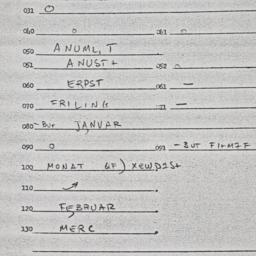 031 O
040 o 041 o
050 ANUML, T
051 ANUST + 052 o
060 ERPST 061 —
070 FRILING —
080 – BUT JANUAR
090 O 093 – BUT
100 MONAT
110
120 FEBRUAR
130 MERC